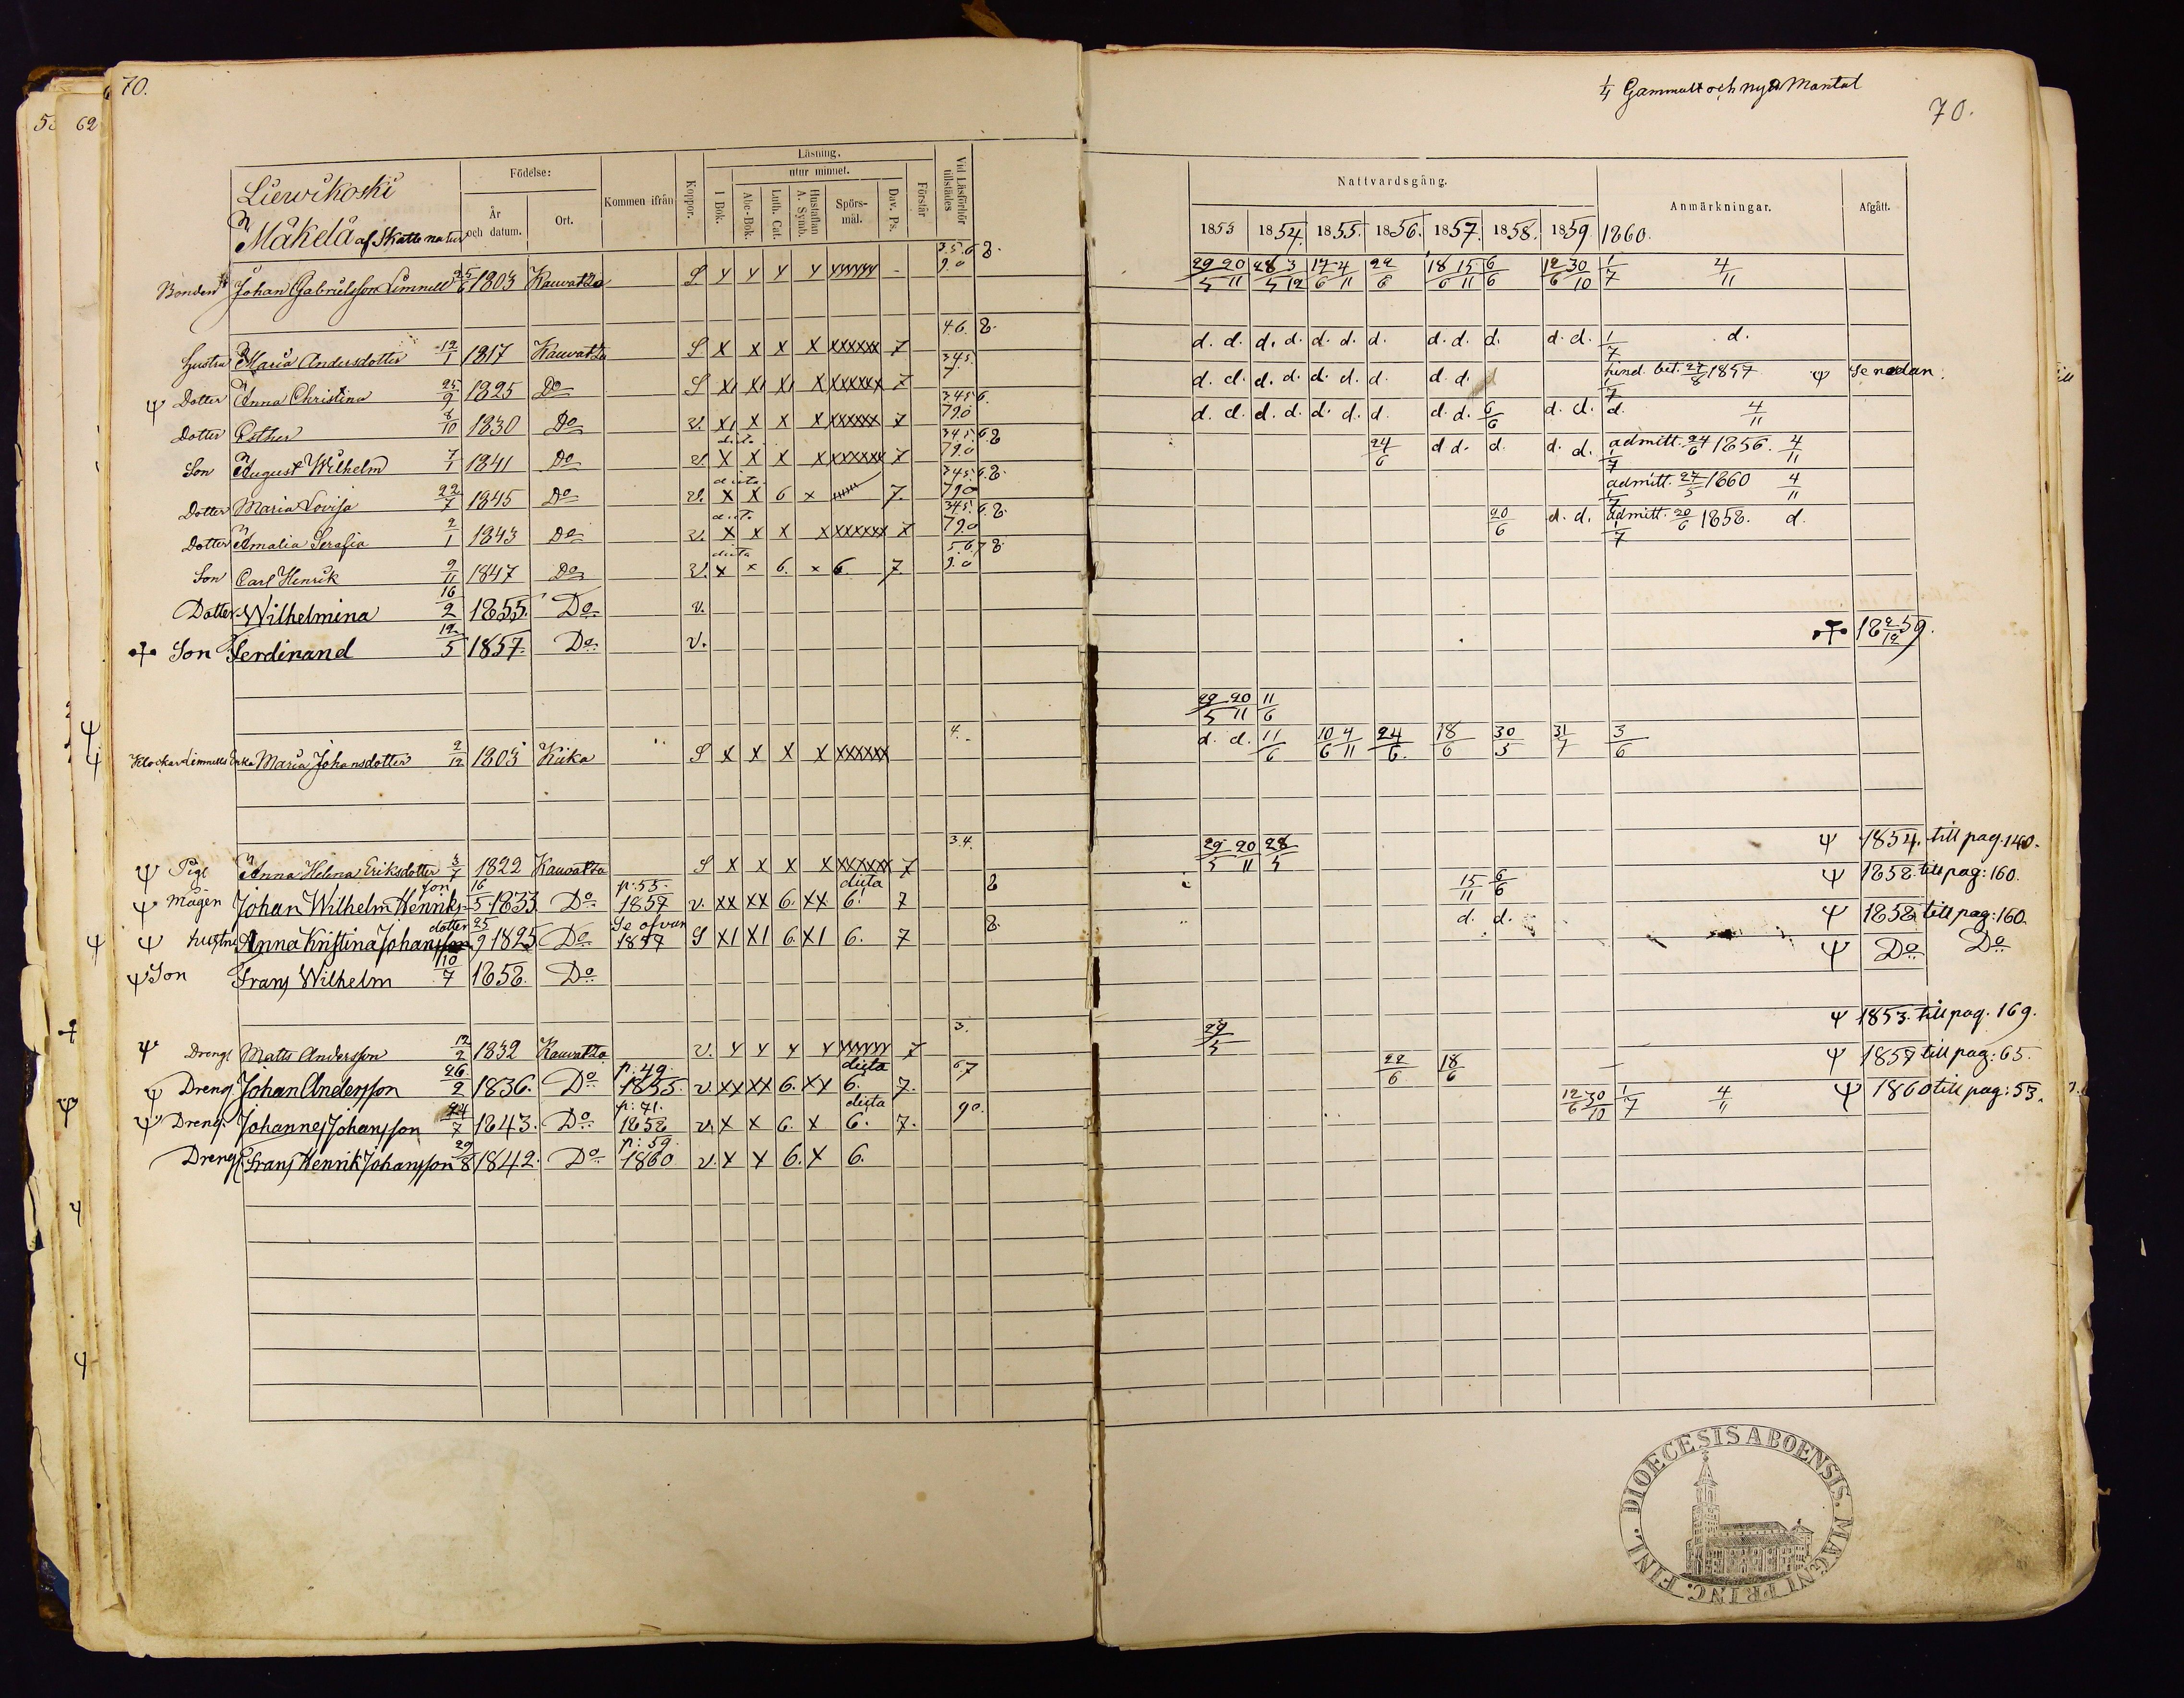 70.
1/4 Gammalt och nytt Mantal
70.
53 62
Liewikoski
Mäkelä af Skatte natur
Födelse:
År och datum.
Ort.
Kommen ifrån
Koppor.
Läsning.
utur minnet.
I Bok.
Abc-Bok.
Luth. Cat.
Hustaflan A. Symb.
Spörsmål.
Dav. Ps.
Förstår
Vid Läsförhör tillstädes
Nattvardsgång.
1853 1854. 1855. 1856. 1857. 1858. 1859. 1860.
Anmärkningar.
Afgått.
Bonden Johan Gabrielsson Limnell 25/6 1803 Kauvatsa S 3.5.6 8. 9.0 29/5 20/11 28/5 3/12 17/6 4/11 22/6 18/6 15/11 6/6 12/6 30/10 1/7 4/11
Hustru Maria Andersdotter 12/1 1817 Kauvatsa S X X X X XXXXXX 7 4.6. 8. d. d. d. d. d. d. d. d. d. d. d. d. 1/7 d.
ψ Dotter Anna Christina 25/9 1825 Do S X X X X XXXXXX 7 3.4.5. 7. d. d. d. d. d. d. d. d. d. d hind. bet. 27/8 1857 ψ Se nedan.
Dotter Esther 8/10 1830 Do v. X X X X XXXXXX 7 3.4.5.6. 7.9.0 d. d. d. d. d. d. d. d. d. 6/6 d. d. 1/7 d. 4/11
Son August Wilhelm 7/1 1841 Do v. X X X X XXXXXX 7 3.4.5.6.8 7.9.0 24/6 d d. d. d. d. admitt. 24/6 1856. 1/7 4/11
Dotter Maria Lovisa 22/7 1845 Do v. X X 6 x 7. 3.4.5.6.8. 7.9.0 admitt. 27/5 1860 4/11
Dotter Amalia Serafia 2/1 1843 Do v. X X X X XXXXXX 7 3.4.5.6.8. 7.9.0 20/6 d. d. admitt. 20/6 1858. 1/7 d.
Son Carl Henrik 9/11 1847 Do v. x x 6. x 6. 7. 5.6.7.8. 9.0
Dotter Wilhelmina 16/2 1855. Do v.
Son Ferdinand 12/5 1857. Do v. 18 2/12 59.
29/5 20/11 11/6
Klockar Limnells Enka Maria Johansdotter 2/12 1803 Kiika S X X X X XXXXXX 4. d. d. 11/6 10/6 4/11 24/6. 18/6 30/5 31/7 3/6
ψ Piga Anna Helena Eriksdotter 3/7 1822 Kauvatsa S X X X X XXXXXX 7 3.4. 29/5 20/11 28/5 ψ 1854. till pag. 140.
ψ Mågen Johan Wilhelm Henriksson 16/5 1833 Do p: 55. 1857 v. XX XX 6. XX 6. 7 8 15/11 6/6 ψ 1858. till pag: 160.
ψ hustru Anna Kristina Johansdotter 25/9 1825 Do Se ofvan 1857 S XI XI 6. XI 6. 7 8. d. d. ψ 1858. till pag: 160.
ψ Son Frans Wilhelm 10/7 1858. Do ψ Do Do
ψ Dreng Matts Andersson 12/2 1832 Kauvatsa v. 7 3. 29/5 ψ 1853. till pag. 169.
ψ Dreng Johan Andersson 26/2 1836. Do p: 49. 1855. v. XX XX 6. XX 6. 7. 67 22/6 18/6 ψ 1857 till pag: 65.
ψ Dreng Johannes Johansson 24/7 1843. Do p: 71. 1858 v. X X 6. X 6. 7. 90. 12/6 30/10 1/7 4/11 ψ 1860 till pag: 53.
Dreng Frans Henrik Johansson 29/8 1842. Do p: 59. 1860 v. X X 6. X 6.
DIOECESIS ABOENSIS. MAGNI PRINC. FINL.